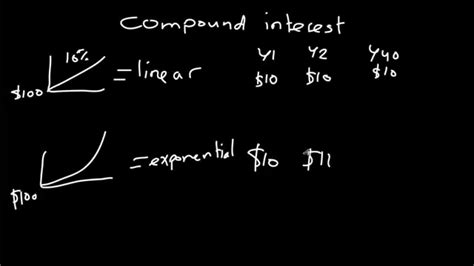 Compound interest
10% Y1 Y2 Y40
$100 = linear $10 $10 $10
$100 = exponential $10 $11